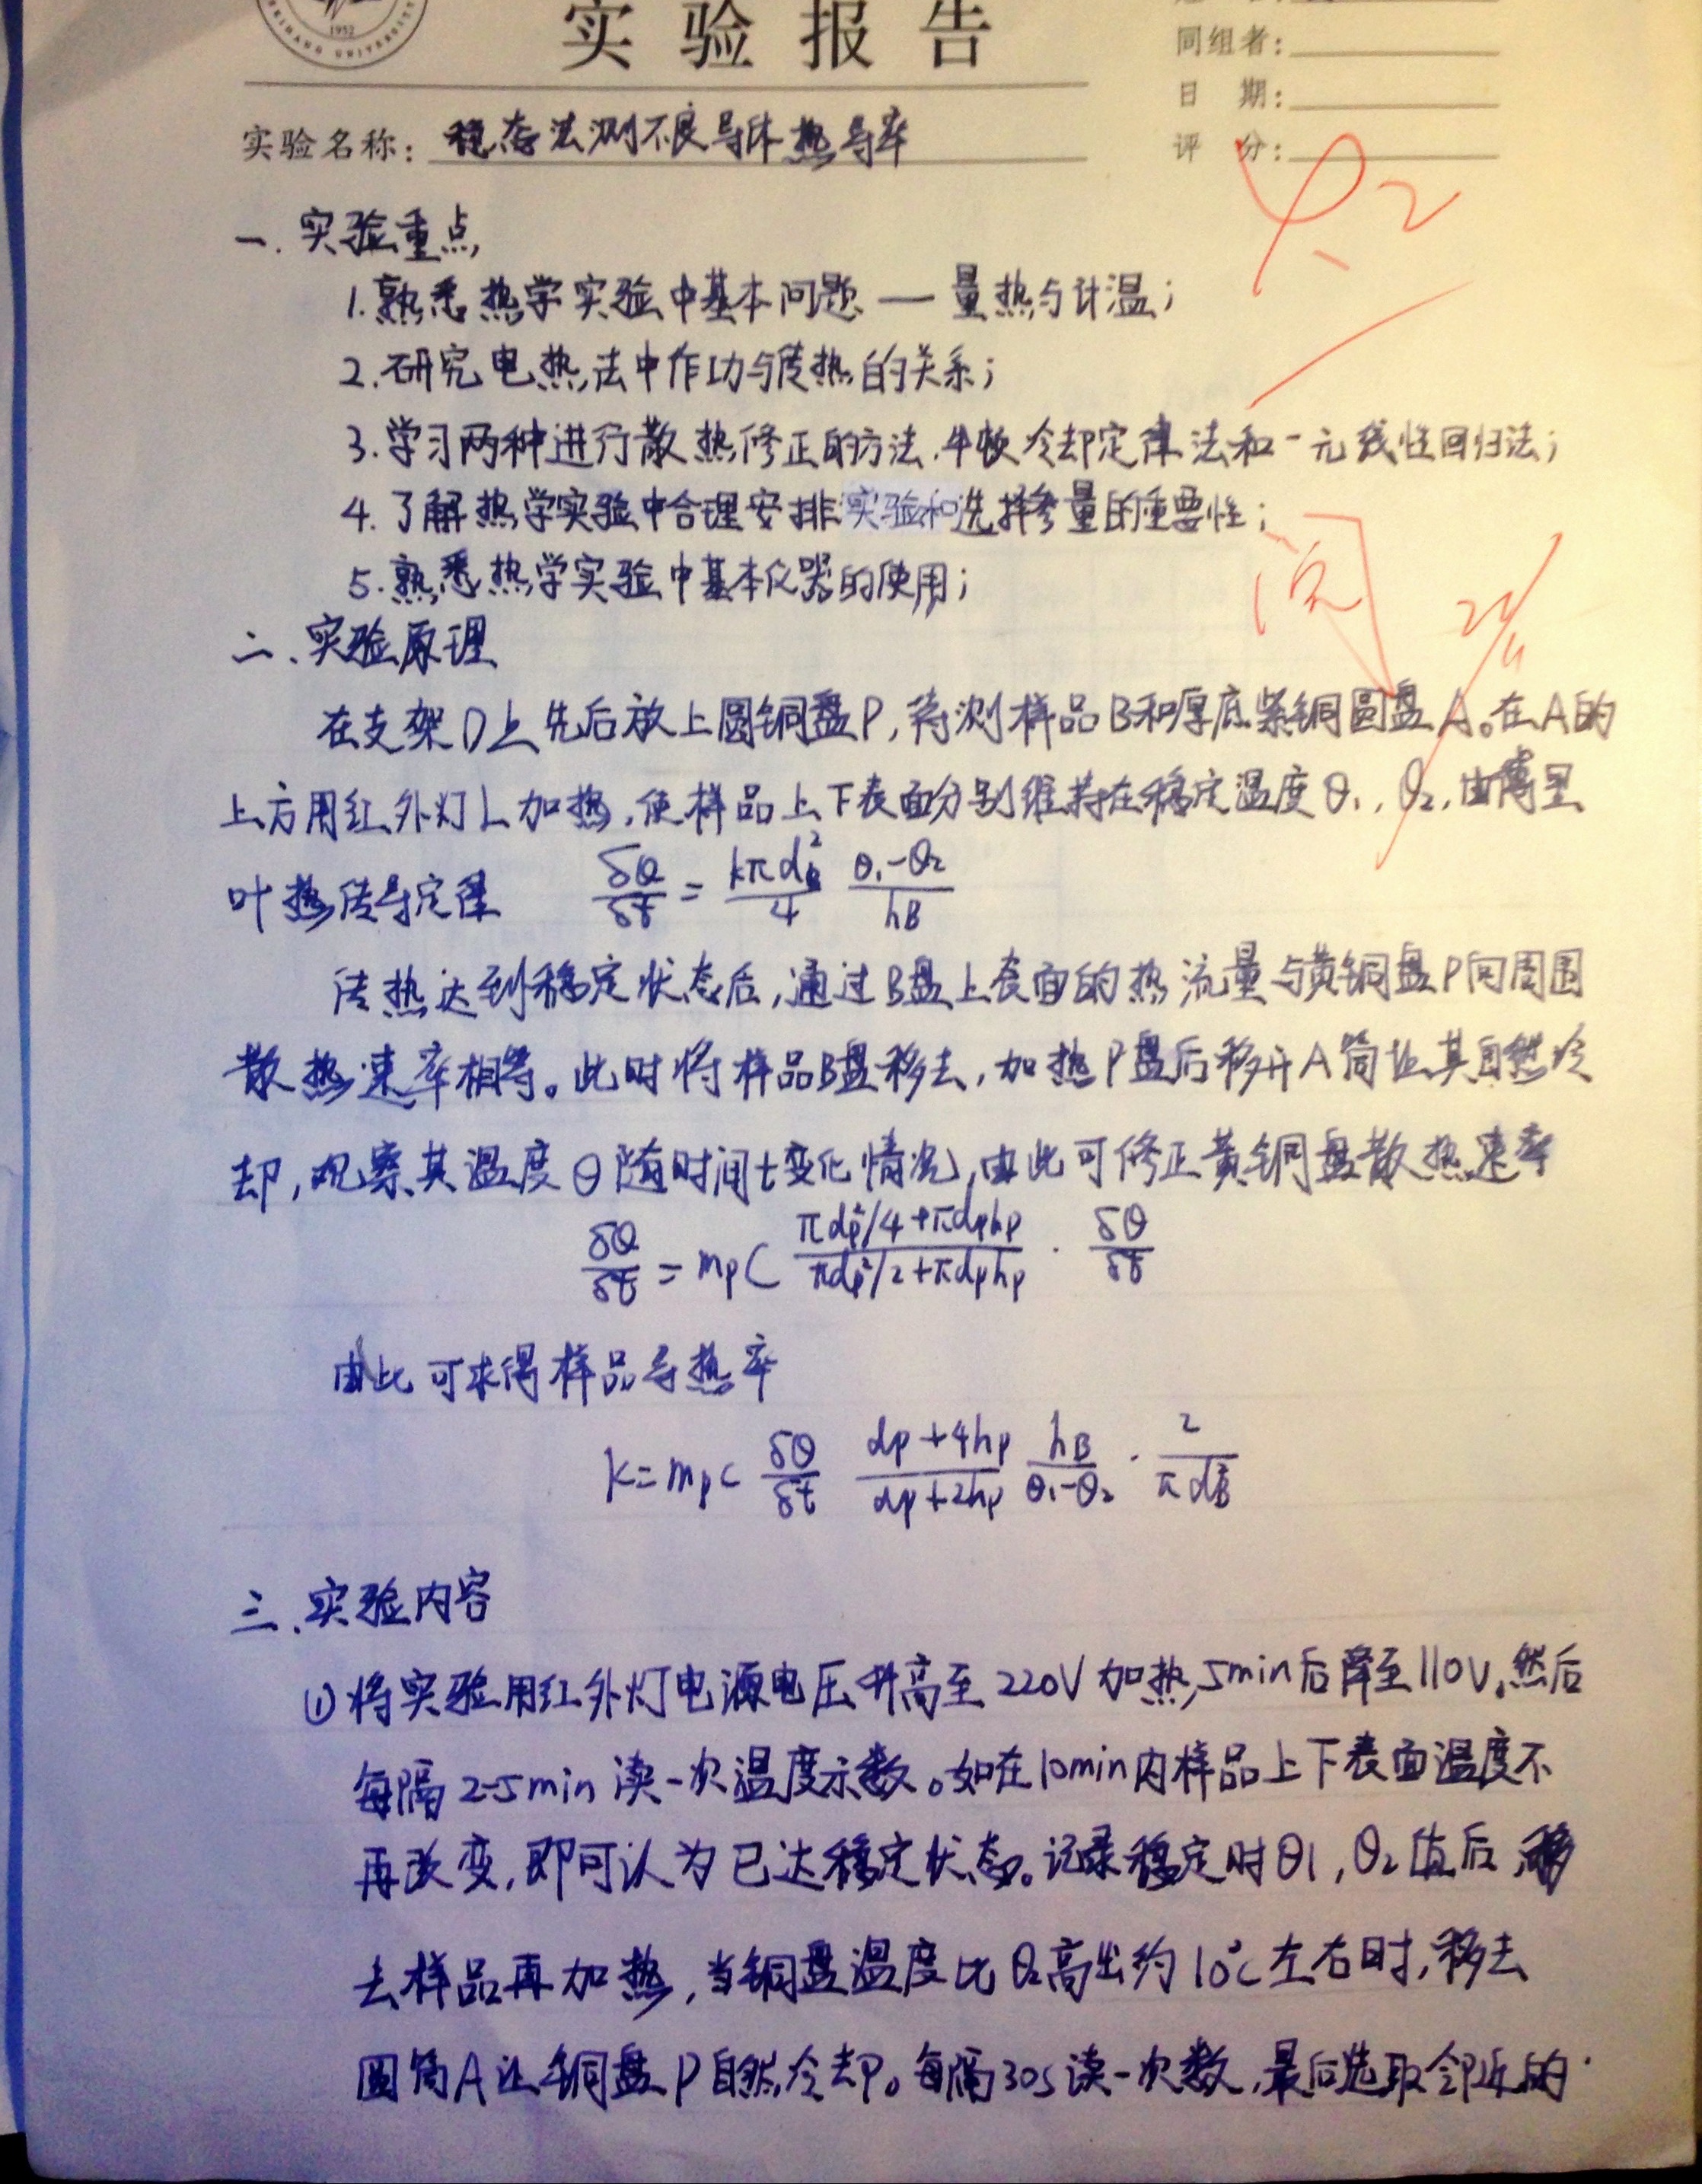 1952
BEIHANG UNIVERSITY
实验报告
同组者:
日 期:
评 分:
实验名称: 稳态法测不良导体热导率
9.2
一.实验重点
1.熟悉热学实验中基本问题 — 量热与计温;
2.研究电热法中作功与传热的关系;
3.学习两种进行散热修正的方法.牛顿冷却定律法和一元线性回归法;
4.了解热学实验中合理安排实验和选择参量的重要性;
5.熟悉热学实验中基本仪器的使用;
二.实验原理
在支架D上先后放上圆铜盘P,待测样品B和厚底紫铜圆盘A。在A的
上方用红外灯L加热,使样品上下表面分别维持在稳定温度θ₁,θ₂,由傅里
叶热传导定律 δQ/δt = kπd_B²/4 · (θ₁-θ₂)/h_B
传热达到稳定状态后,通过B盘上表面的热流量与黄铜盘P向周围
散热速率相等。此时将样品B盘移去,加热P盘后移开A筒让其自然冷
却,观察其温度θ随时间t变化情况,由此可修正黄铜盘散热速率
δQ/δt = m_pC (πd_p²/4+πd_ph_p)/(πd_p²/2+πd_ph_p) · δθ/δt
由此可求得样品导热率
k=m_pc δθ/δt (d_p+4h_p)/(d_p+2h_p) h_B/(θ₁-θ₂) · 2/(πd_B²)
三.实验内容
①将实验用红外灯电源电压升高至220V加热,5min后降至110V,然后
每隔2-5min读一次温度示数。如在10min内样品上下表面温度不
再改变,即可认为已达稳定状态。记录稳定时θ1,θ₂值后移
去样品再加热,当铜盘温度比θ₂高出约10℃左右时,移去
圆筒A让铜盘P自然冷却。每隔30s读一次数,最后选取邻近的